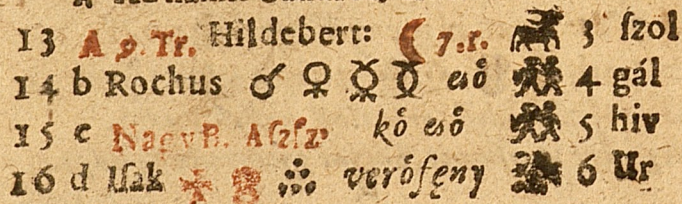 13 A 9. Tr. Hildebert: ☾ 7. r. ♉ 3 ſzol
14 b Rochus ♂ ♀ ☿ ☿ eső ♊ 4 gál
15 c Nagy B. Aſzſz’ kő eső ♊ 5 hiv
16 d Iſak veröfęny 6 Ur